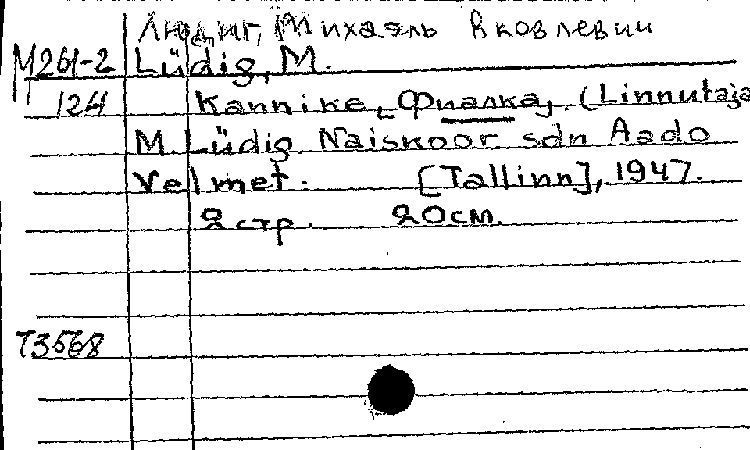 Людиг, Михаэль Яковлевич
М261-2 Lüdig, M.
124 Kannike, Фиалка, (Linnutaja
M. Lüdig Naiskoor. sdn Aado
Velmet. [Tallinn], 1947.
2 стр. 20см.
T3568